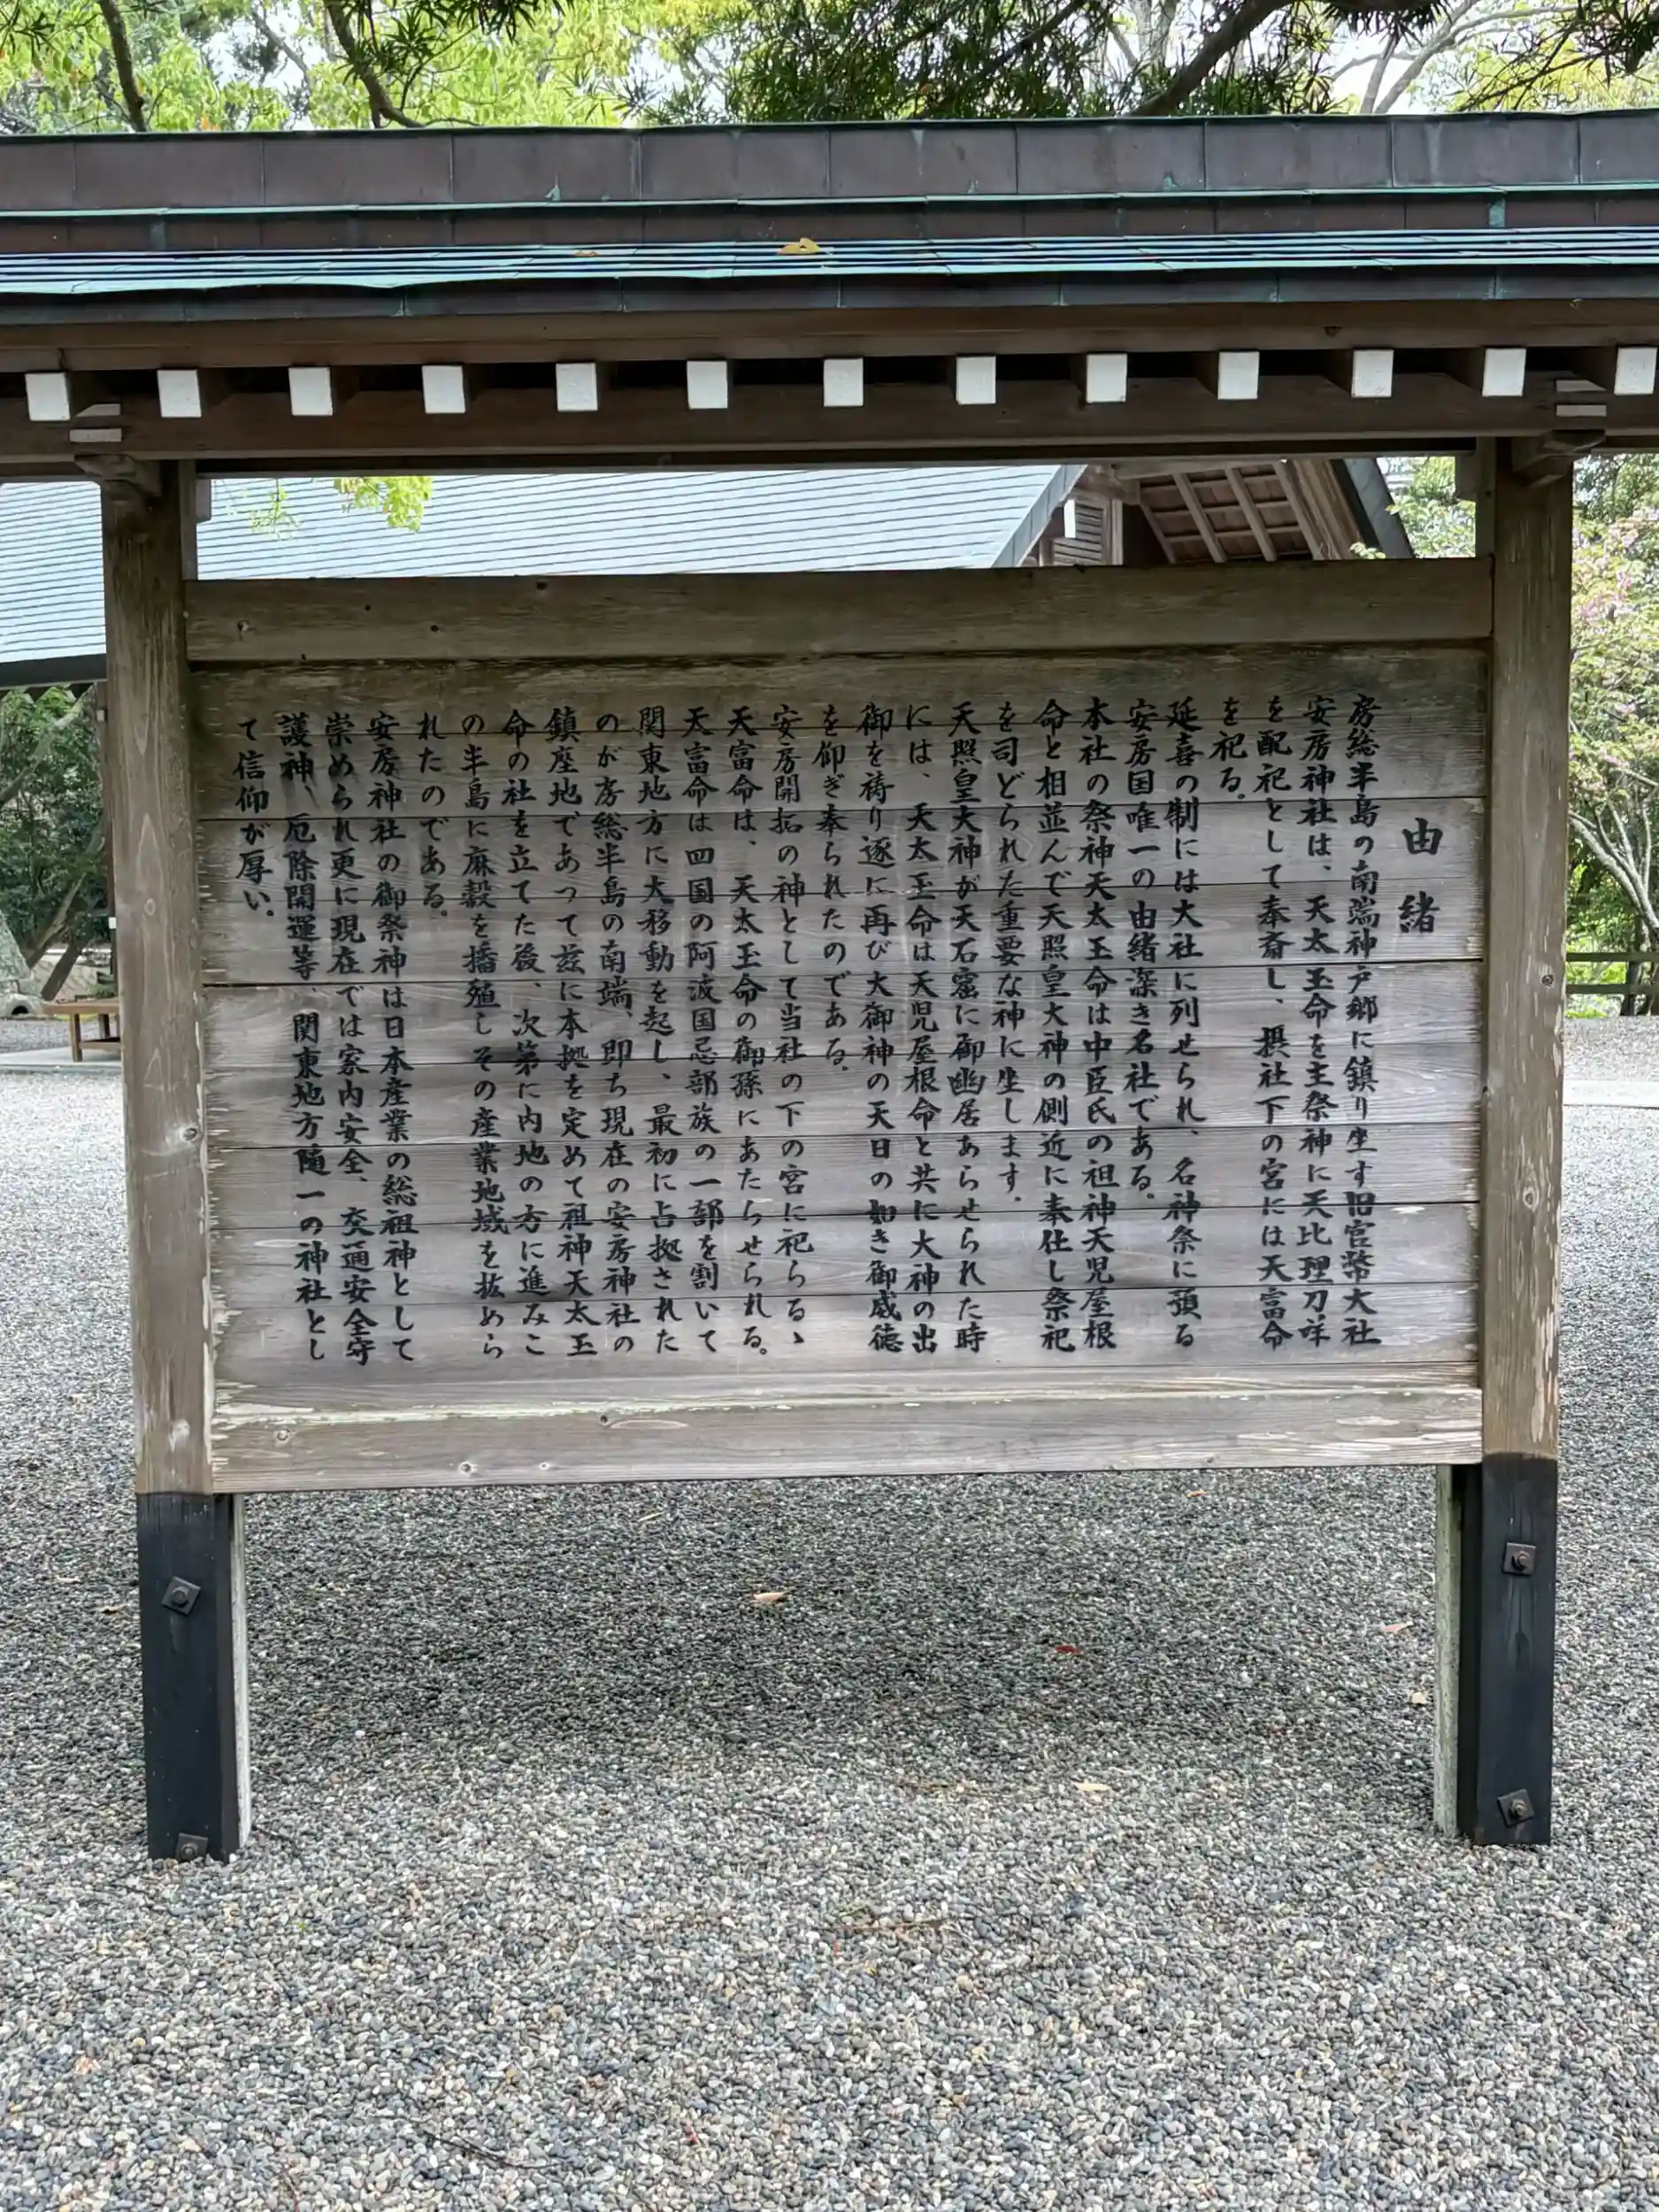 由緒
房総半島の南端神戸郷に鎮り坐す旧官幣大社
安房神社は、天太玉命を主祭神に天比理刀咩
を配祀として奉斎し、摂社下の宮には天富命
を祀る。
延喜の制には大社に列せられ 名神祭に預る
安房国唯一の由緒深き名社である。
本社の祭神天太玉命は中臣氏の祖神天児屋根
命と相並んで天照皇大神の側近に奉仕し祭祀
を司どられた重要な神に坐します。
天照皇大神が天石窟に御幽居あらせられた時
には、天太玉命は天児屋根命と共に大神の出
御を祷り逐に再び大御神の天日の如き御威徳
を仰ぎ奉られたのである。
安房開拓の神として当社の下の宮に祀らるゝ
天富命は、天太玉命の御孫にあたらせられる。
天富命は四国の阿波国忌部族の一部を割いて
関東地方に大移動を起し、最初に占拠された
のが房総半島の南端、即ち現在の安房神社の
鎮座地であって茲に本拠を定めて祖神天太玉
命の社を立てた後、次第に内地の方に進みこ
の半島に麻穀を播殖しその産業地域を拡めら
れたのである。
安房神社の御祭神は日本産業の総祖神として
崇められ更に現在では家内安全、交通安全守
護神、厄除開運等、関東地方随一の神社とし
て信仰が厚い。